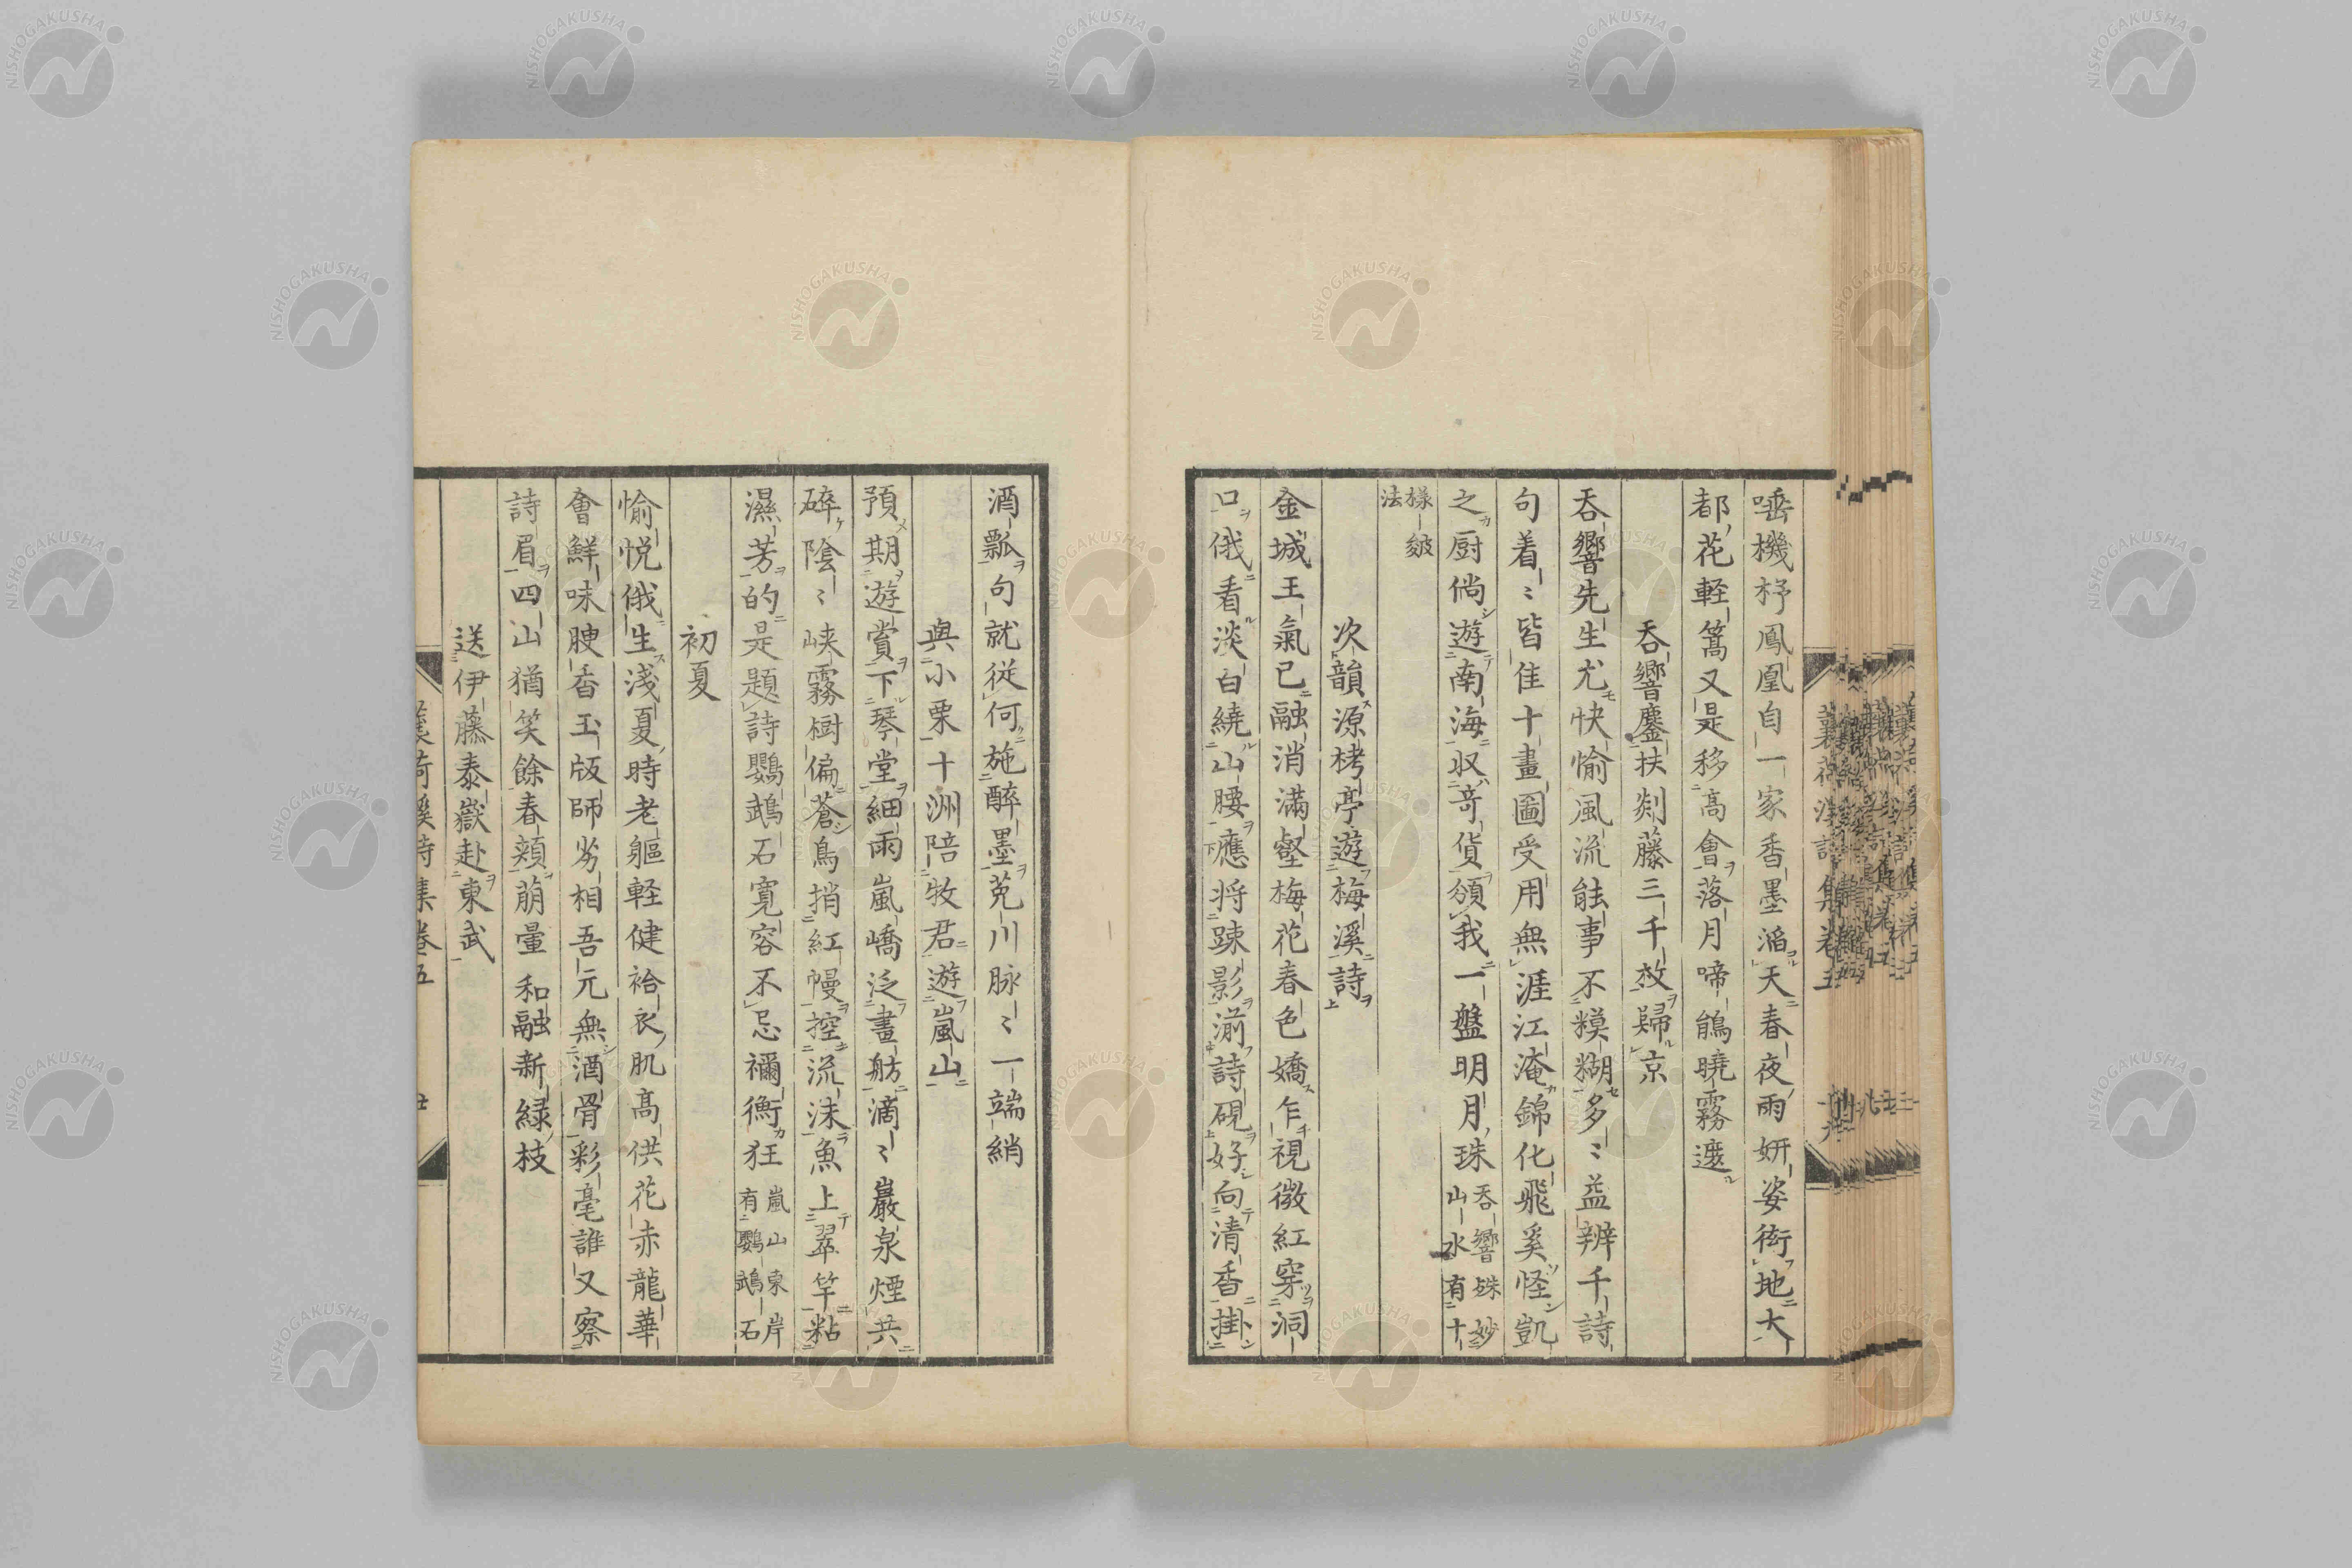 唾機杼鳳凰自一家香墨滔天春夜雨妍姿衒地大
都花軽篙又是移高會落月啼鵑曉霧遮
呑響鏖扶剡藤三千枚歸京
呑響先生尤快愉風流能事不糢糊多〻益辨千詩
句着〻皆佳十畫圖受用無涯江淹錦化飛奚怪凱
之厨倘遊南海収奇貨頒我一盤明月珠 呑響殊妙山水有十
樣皴法
次韻源栲亭遊梅溪詩
金城王氣已融消滿壑梅花春色嬌乍視微紅穿洞
口俄看淡白繞山腰應将踈影湔詩硯好向清香掛
酒瓢句就従何施醉墨菟川脉〻一端綃
與小栗十洲陪牧君遊嵐山
預期遊賞下琴堂細雨嵐嶠泛畫舫滴〻巖泉煙共
碎陰〻峽霧樹偏蒼鳥捎紅幔控流沫魚上翠竿粘
濕芳的是題詩鸚鵡石寛容不忌禰衡狂 嵐山東岸有鸚鵡石
初夏
愉悦俄生浅夏時老軀軽健袷衣肌高供花赤龍華
會鮮味腴香玉版師劣相吾元無酒骨彩毫誰又察
詩眉四山猶笑餘春頬萠暈和融新緑枝
送伊藤泰嶽赴東武
蘘荷溪詩集卷五